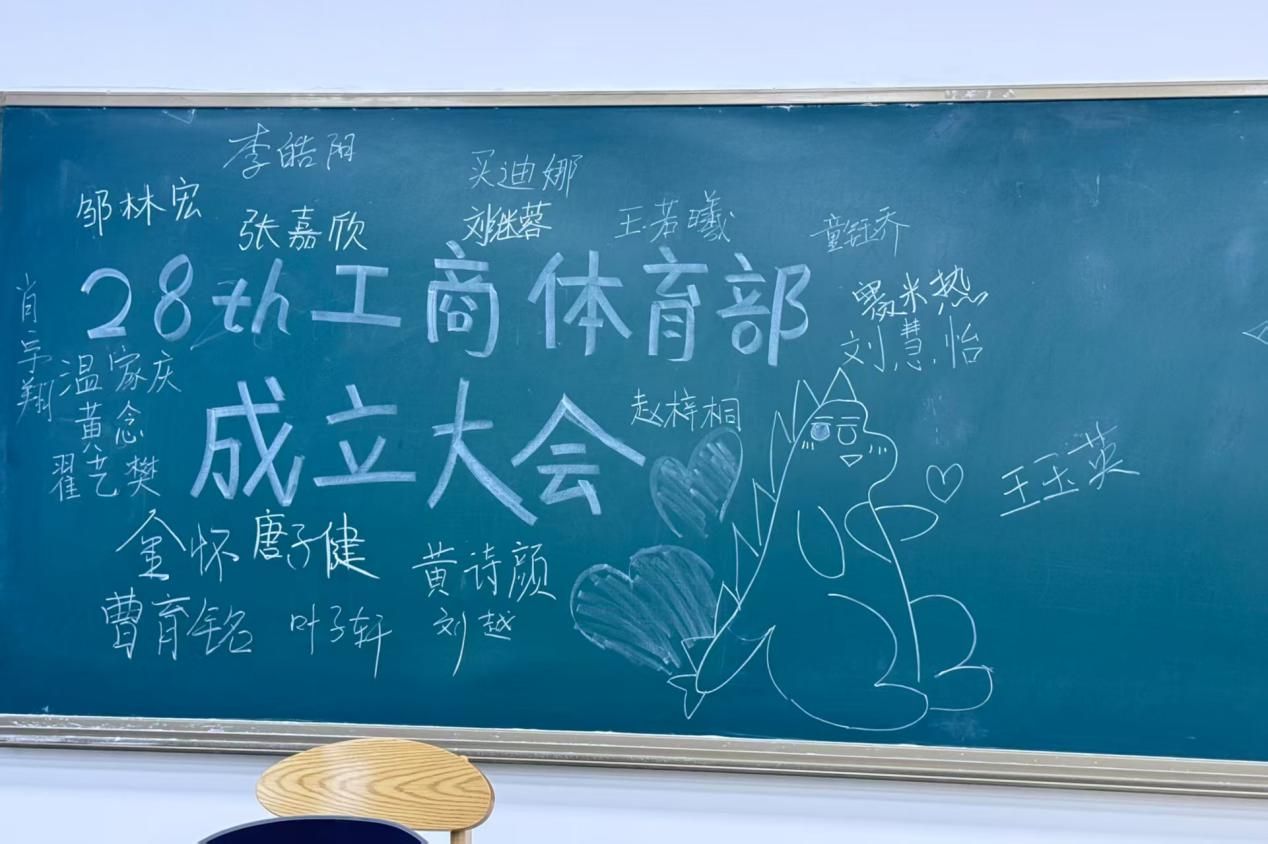 李皓阳
买迪娜
邹林宏
张嘉欣
刘继蓉
王若曦
童钰乔
28th工商体育部
米热
刘慧怡
肖宇翔
温家庆
黄念
翟艺樊
成立大会
赵梓相
王玉英
金怀
唐子健
黄诗颜
曹育铭
叶子轩
刘越